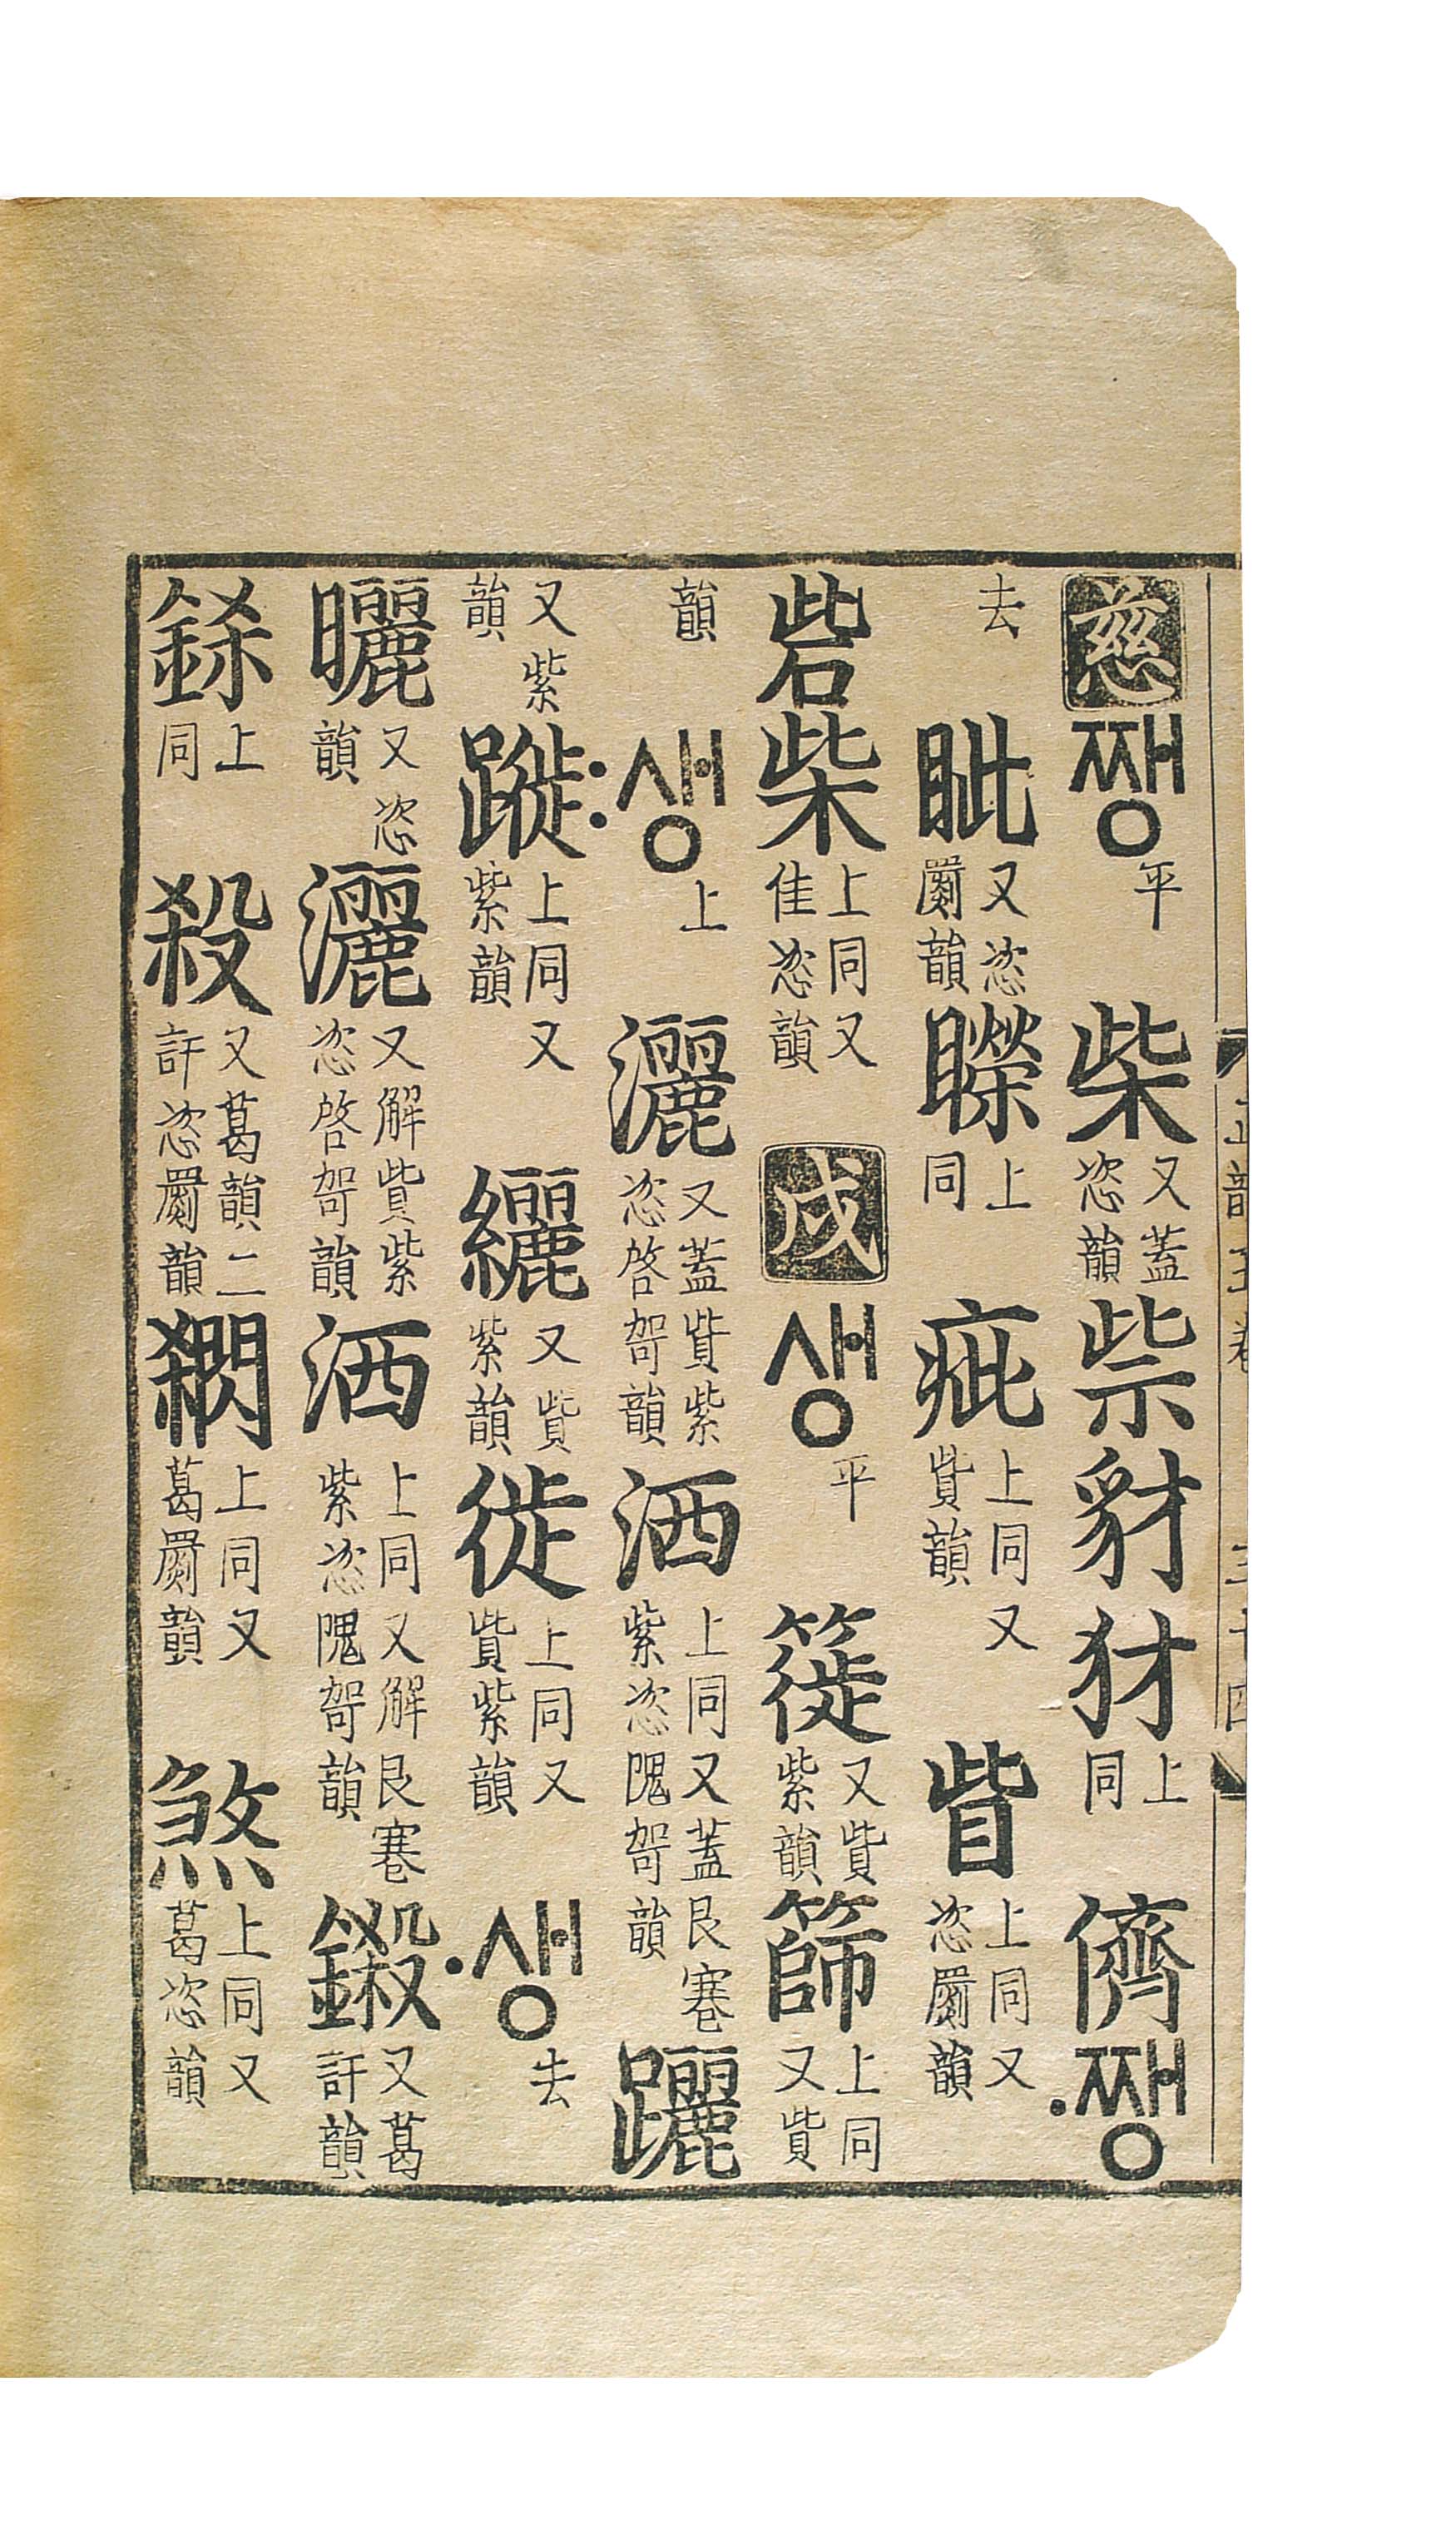 慈쨍平柴又蓋恣韻祡豺犲上同儕·쨍
去眦又恣罽韻上同疵上同又貲韻眥上同又恣罽韻
砦柴上同又佳恣韻戌생平簁又貲紫韻篩上同又貲
韻:생上灑又蓋貲紫恣啓哿韻洒上同又蓋艮寋紫恣隗哿韻躧
又紫韻蹝上同又紫韻纚又貲紫韻徙上同又貲紫韻·생去
曬又恣韻灑又解貲紫恣啓哿韻洒上同又解艮寋紫恣隗哿韻鎩又葛訐韻
上同殺又葛韻二訐恣罽韻上同又葛罽韻煞上同又葛恣韻